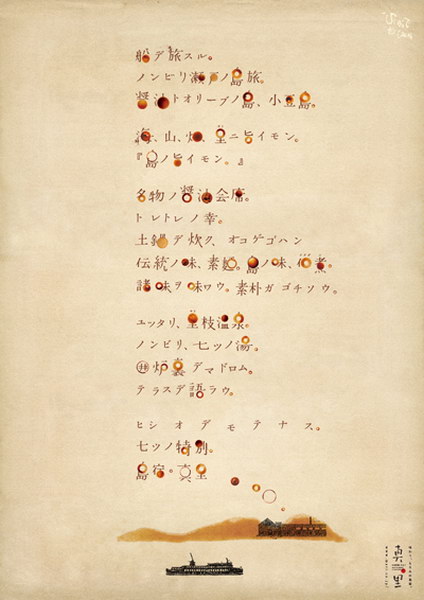 船デ旅スル。
ノンビリ瀬戸ノ島旅。
醤油トオリーブノ島、小豆島。
海、山、畑、里ニ旨イモン。
『島ノ旨イモン。』
名物ノ醤油会席。
トレトレノ幸。
土鍋デ炊ク、オコゲゴハン
伝統ノ味、素麺。島ノ味、佃煮。
諸味ヲ味ワウ。素朴ガゴチソウ。
ユッタリ、里枝温泉。
ノンビリ、七ツノ湯。
囲炉裏デマドロム。
テラスデ語ラウ。
ヒシオデモテナス。
七ツノ特別。
島宿。真里
真里